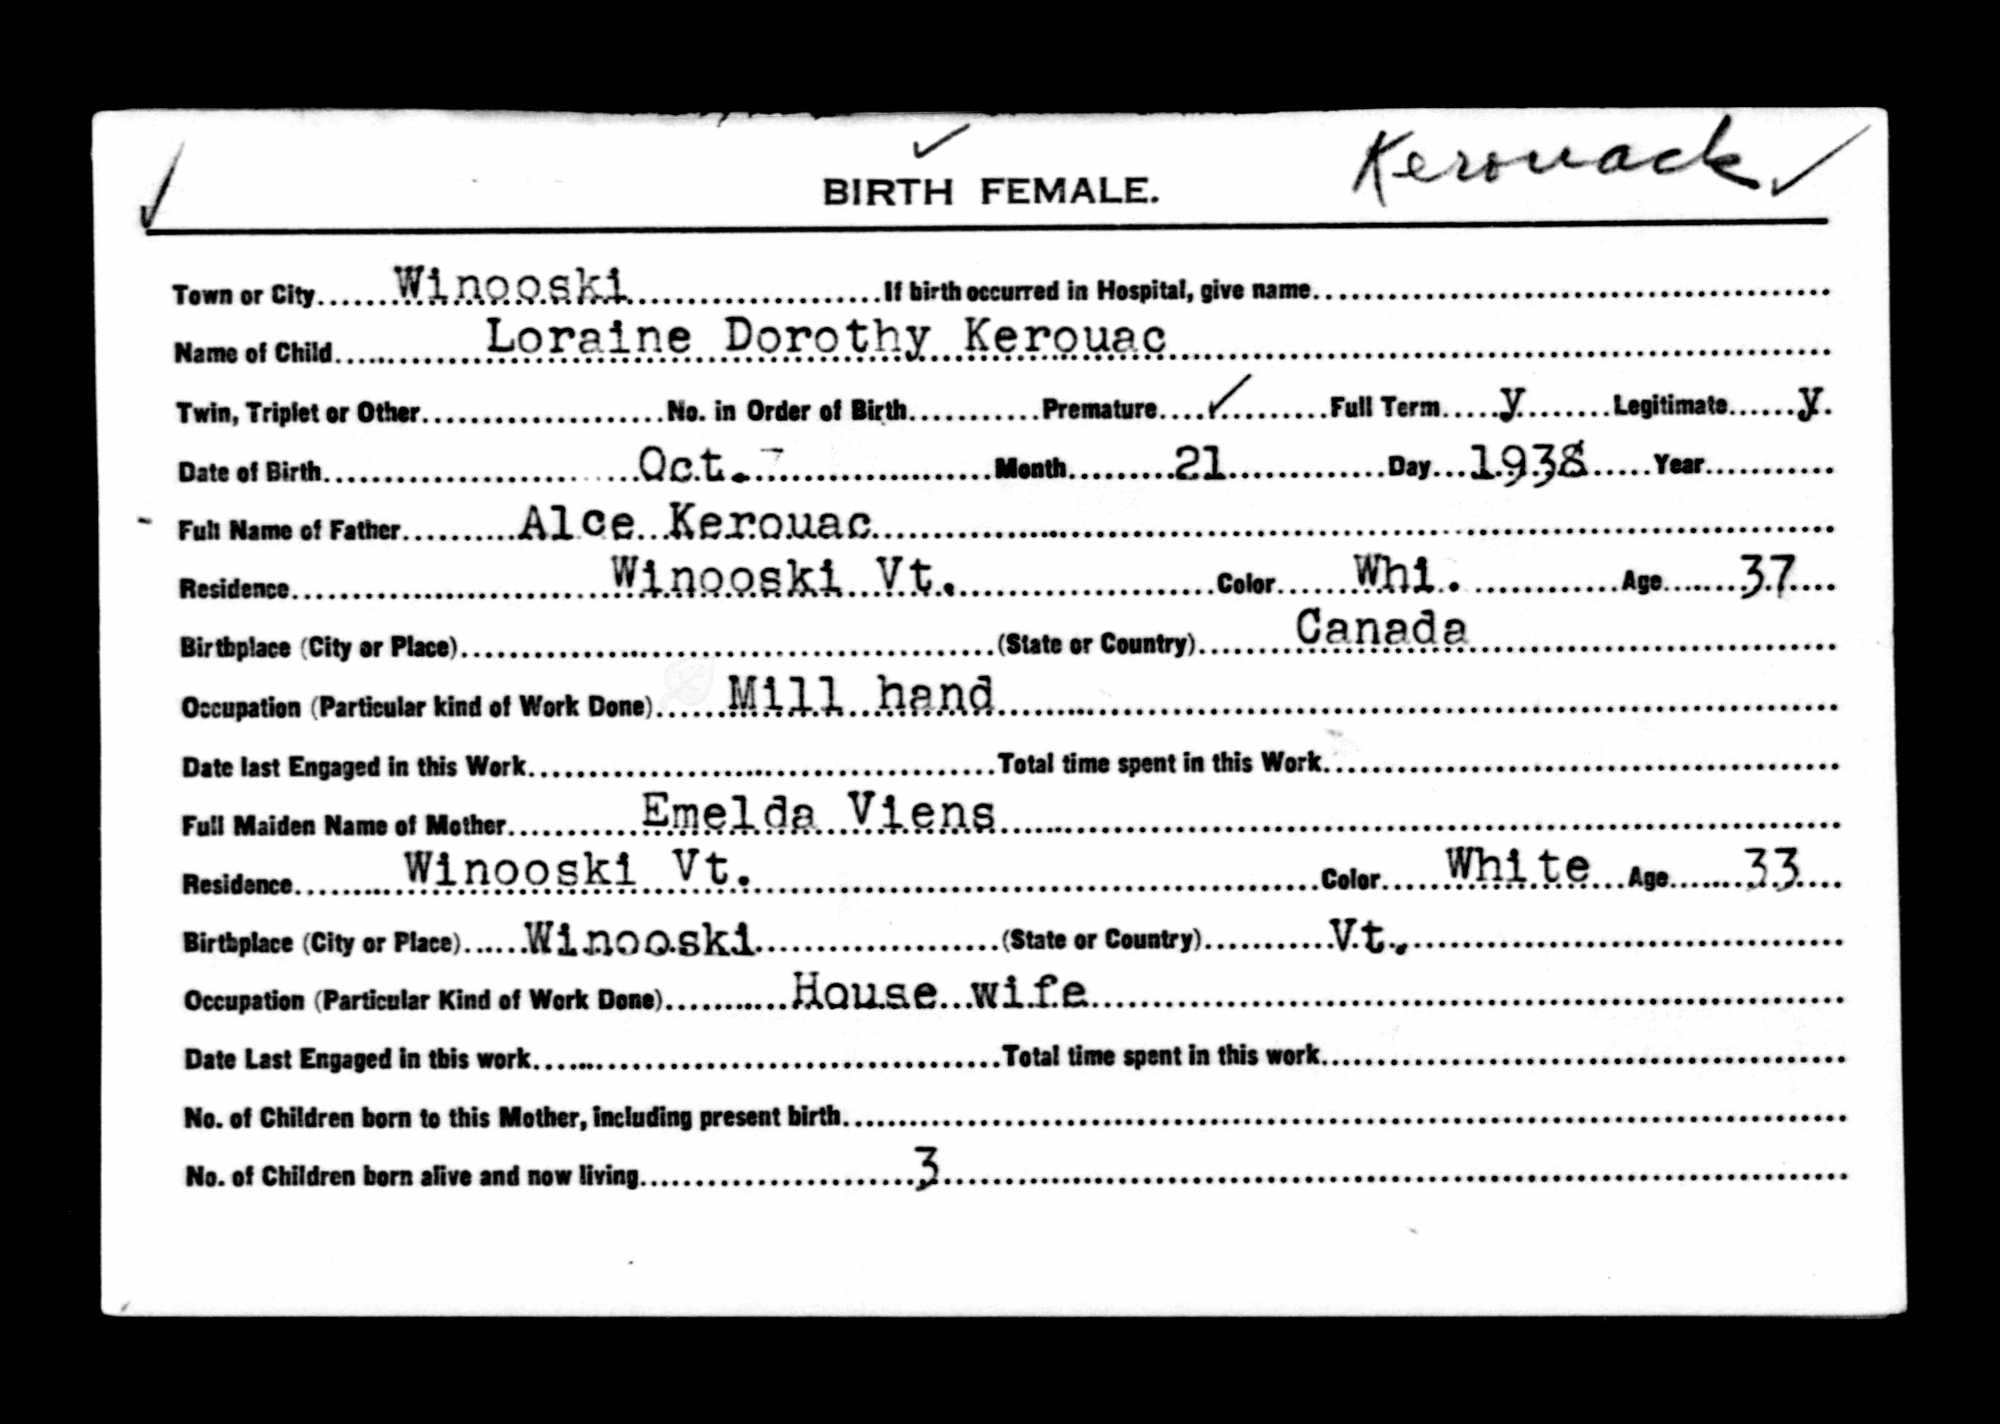 Kerouack
BIRTH FEMALE.
Town or City Winooski If birth occurred in Hospital, give name
Name of Child Loraine Dorothy Kerouac
Twin, Triplet or Other No. in Order of Birth Premature ✓ Full Term y Legitimate y.
Date of Birth Oct. Month 21 Day 1938 Year
Full Name of Father Alce Kerouac
Residence Winooski Vt. Color Whi. Age 37
Birthplace (City or Place) (State or Country) Canada
Occupation (Particular kind of Work Done) Mill hand
Date last Engaged in this Work Total time spent in this Work
Full Maiden Name of Mother Emelda Viens
Residence Winooski Vt. Color White Age 33
Birthplace (City or Place) Winooski (State or Country) Vt.
Occupation (Particular Kind of Work Done) House wife
Date Last Engaged in this work Total time spent in this work
No. of Children born to this Mother, including present birth
No. of Children born alive and now living 3